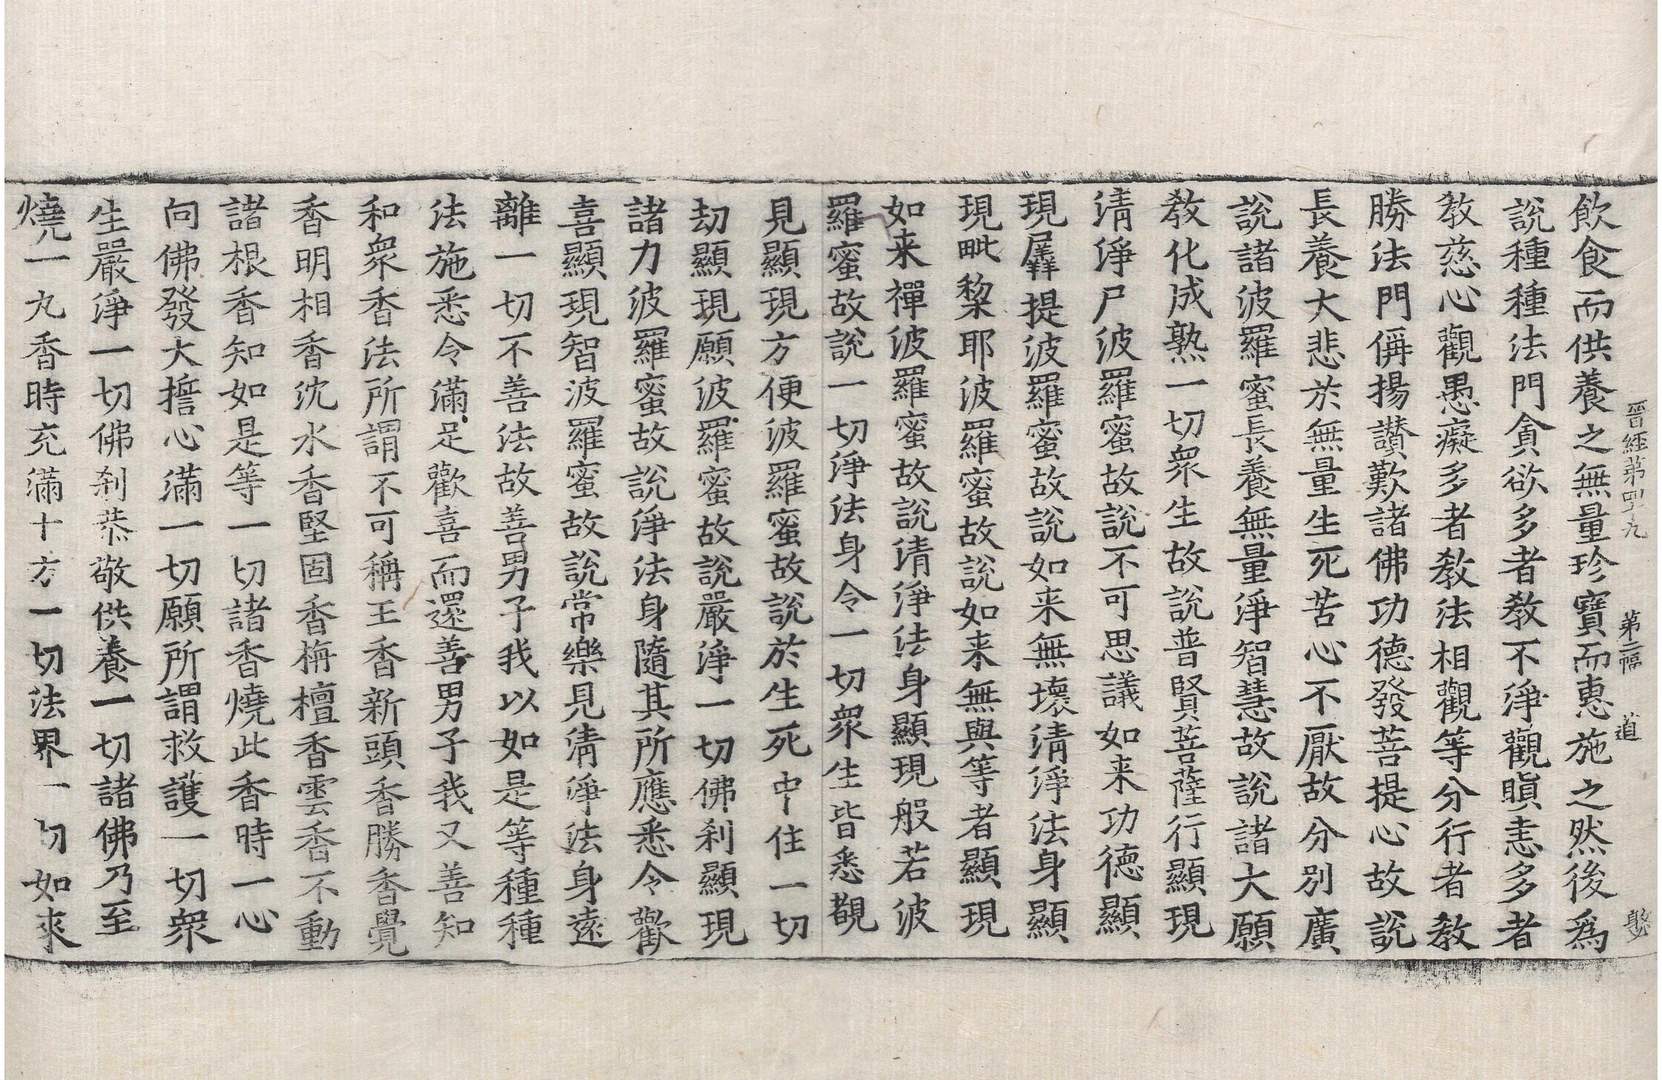 晉經第四十九 第二幅 道
飲食而供養之無量珍寶而惠施之然後爲
說種種法門貪欲多者教不淨觀瞋恚多者
教慈心觀愚癡多者教法相觀等分行者教
勝法門偁揚讃歎諸佛功德發菩提心故說
長養大悲於無量生死苦心不厭故分別廣
說諸波羅蜜長養無量淨智慧故說諸大願
教化成熟一切衆生故說普賢菩薩行顯現
淸淨尸波羅蜜故說不可思議如来功德顯
現羼提波羅蜜故說如来無壞淸淨法身顯
現毗棃耶波羅蜜故說如来無與等者顯現
如来禪波羅蜜故說淸淨法身顯現般若波
羅蜜故說一切淨法身令一切衆生皆悉覩
見顯現方便波羅蜜故說於生死中住一切
劫顯現願波羅蜜故說嚴淨一切佛刹顯現
諸力波羅蜜故說淨法身隨其所應悉令歡
喜顯現智波羅蜜故說常樂見淸淨法身遠
離一切不善法故善男子我以如是等種種
法施悉令滿足歡喜而還善男子我又善知
和衆香法所謂不可稱王香新頭香勝香覺
香明相香沈水香堅固香栴檀香雲香不動
諸根香知如是等一切諸香燒此香時一心
向佛發大誓心滿一切願所謂救護一切衆
生嚴淨一切佛刹恭敬供養一切諸佛乃至
燒一丸香時充滿十方一切法界一切如來